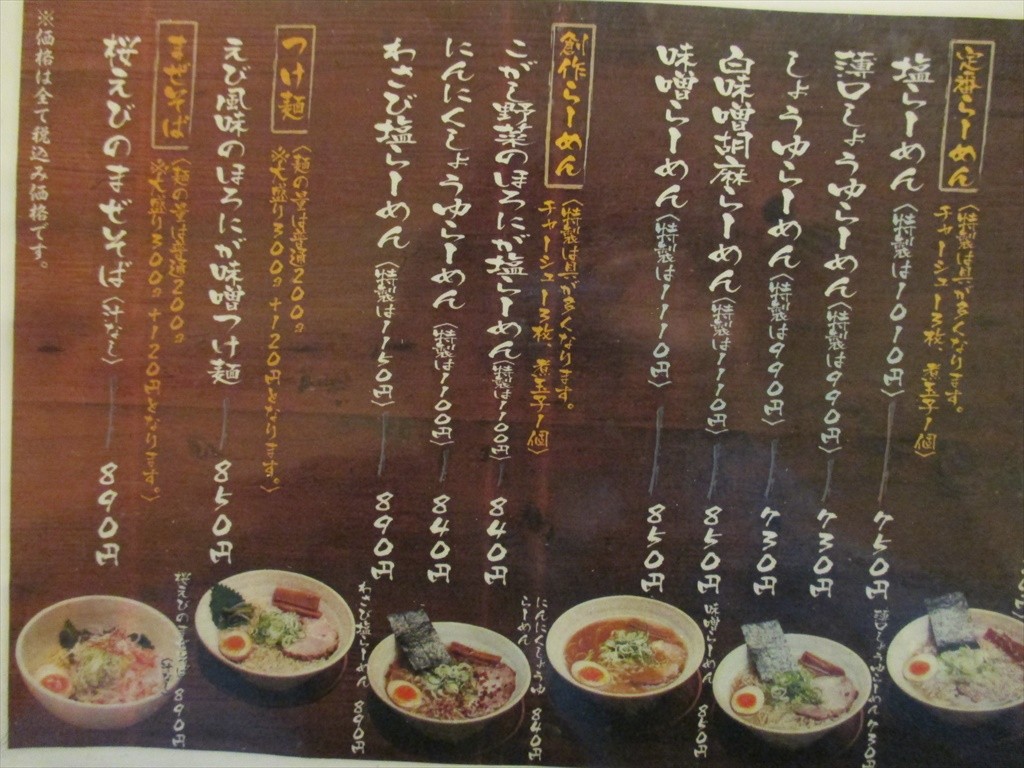 定番らーめん
〈特製は具が多くなります。
チャーシュー3枚 煮玉子1個〉
塩らーめん〈特製は1010円〉 750円
薄口しょうゆらーめん〈特製は990円〉 730円
しょうゆらーめん〈特製は990円〉 730円
白味噌胡麻らーめん〈特製は1110円〉 850円
味噌らーめん〈特製は1110円〉 850円
創作らーめん
〈特製は具が多くなります。
チャーシュー3枚 煮玉子1個〉
こがし野菜のほろにが塩らーめん〈特製は1100円〉 840円
にんにくしょうゆらーめん〈特製は1100円〉 840円
わさび塩らーめん〈特製は1150円〉 890円
つけ麺
〈麺の量は普通200g
※大盛り300g+120円となります。〉
えび風味のほろにが味噌つけ麺 850円
まぜそば
〈麺の量は普通200g
※大盛り300g+120円となります。〉
桜えびのまぜそば〈汁なし〉 890円
※価格は全て税込み価格です。
薄口しょうゆらーめん 730円
味噌らーめん 850円
にんにくしょうゆ
らーめん 840円
わさび塩らーめん 890円
桜えびのまぜそば 890円